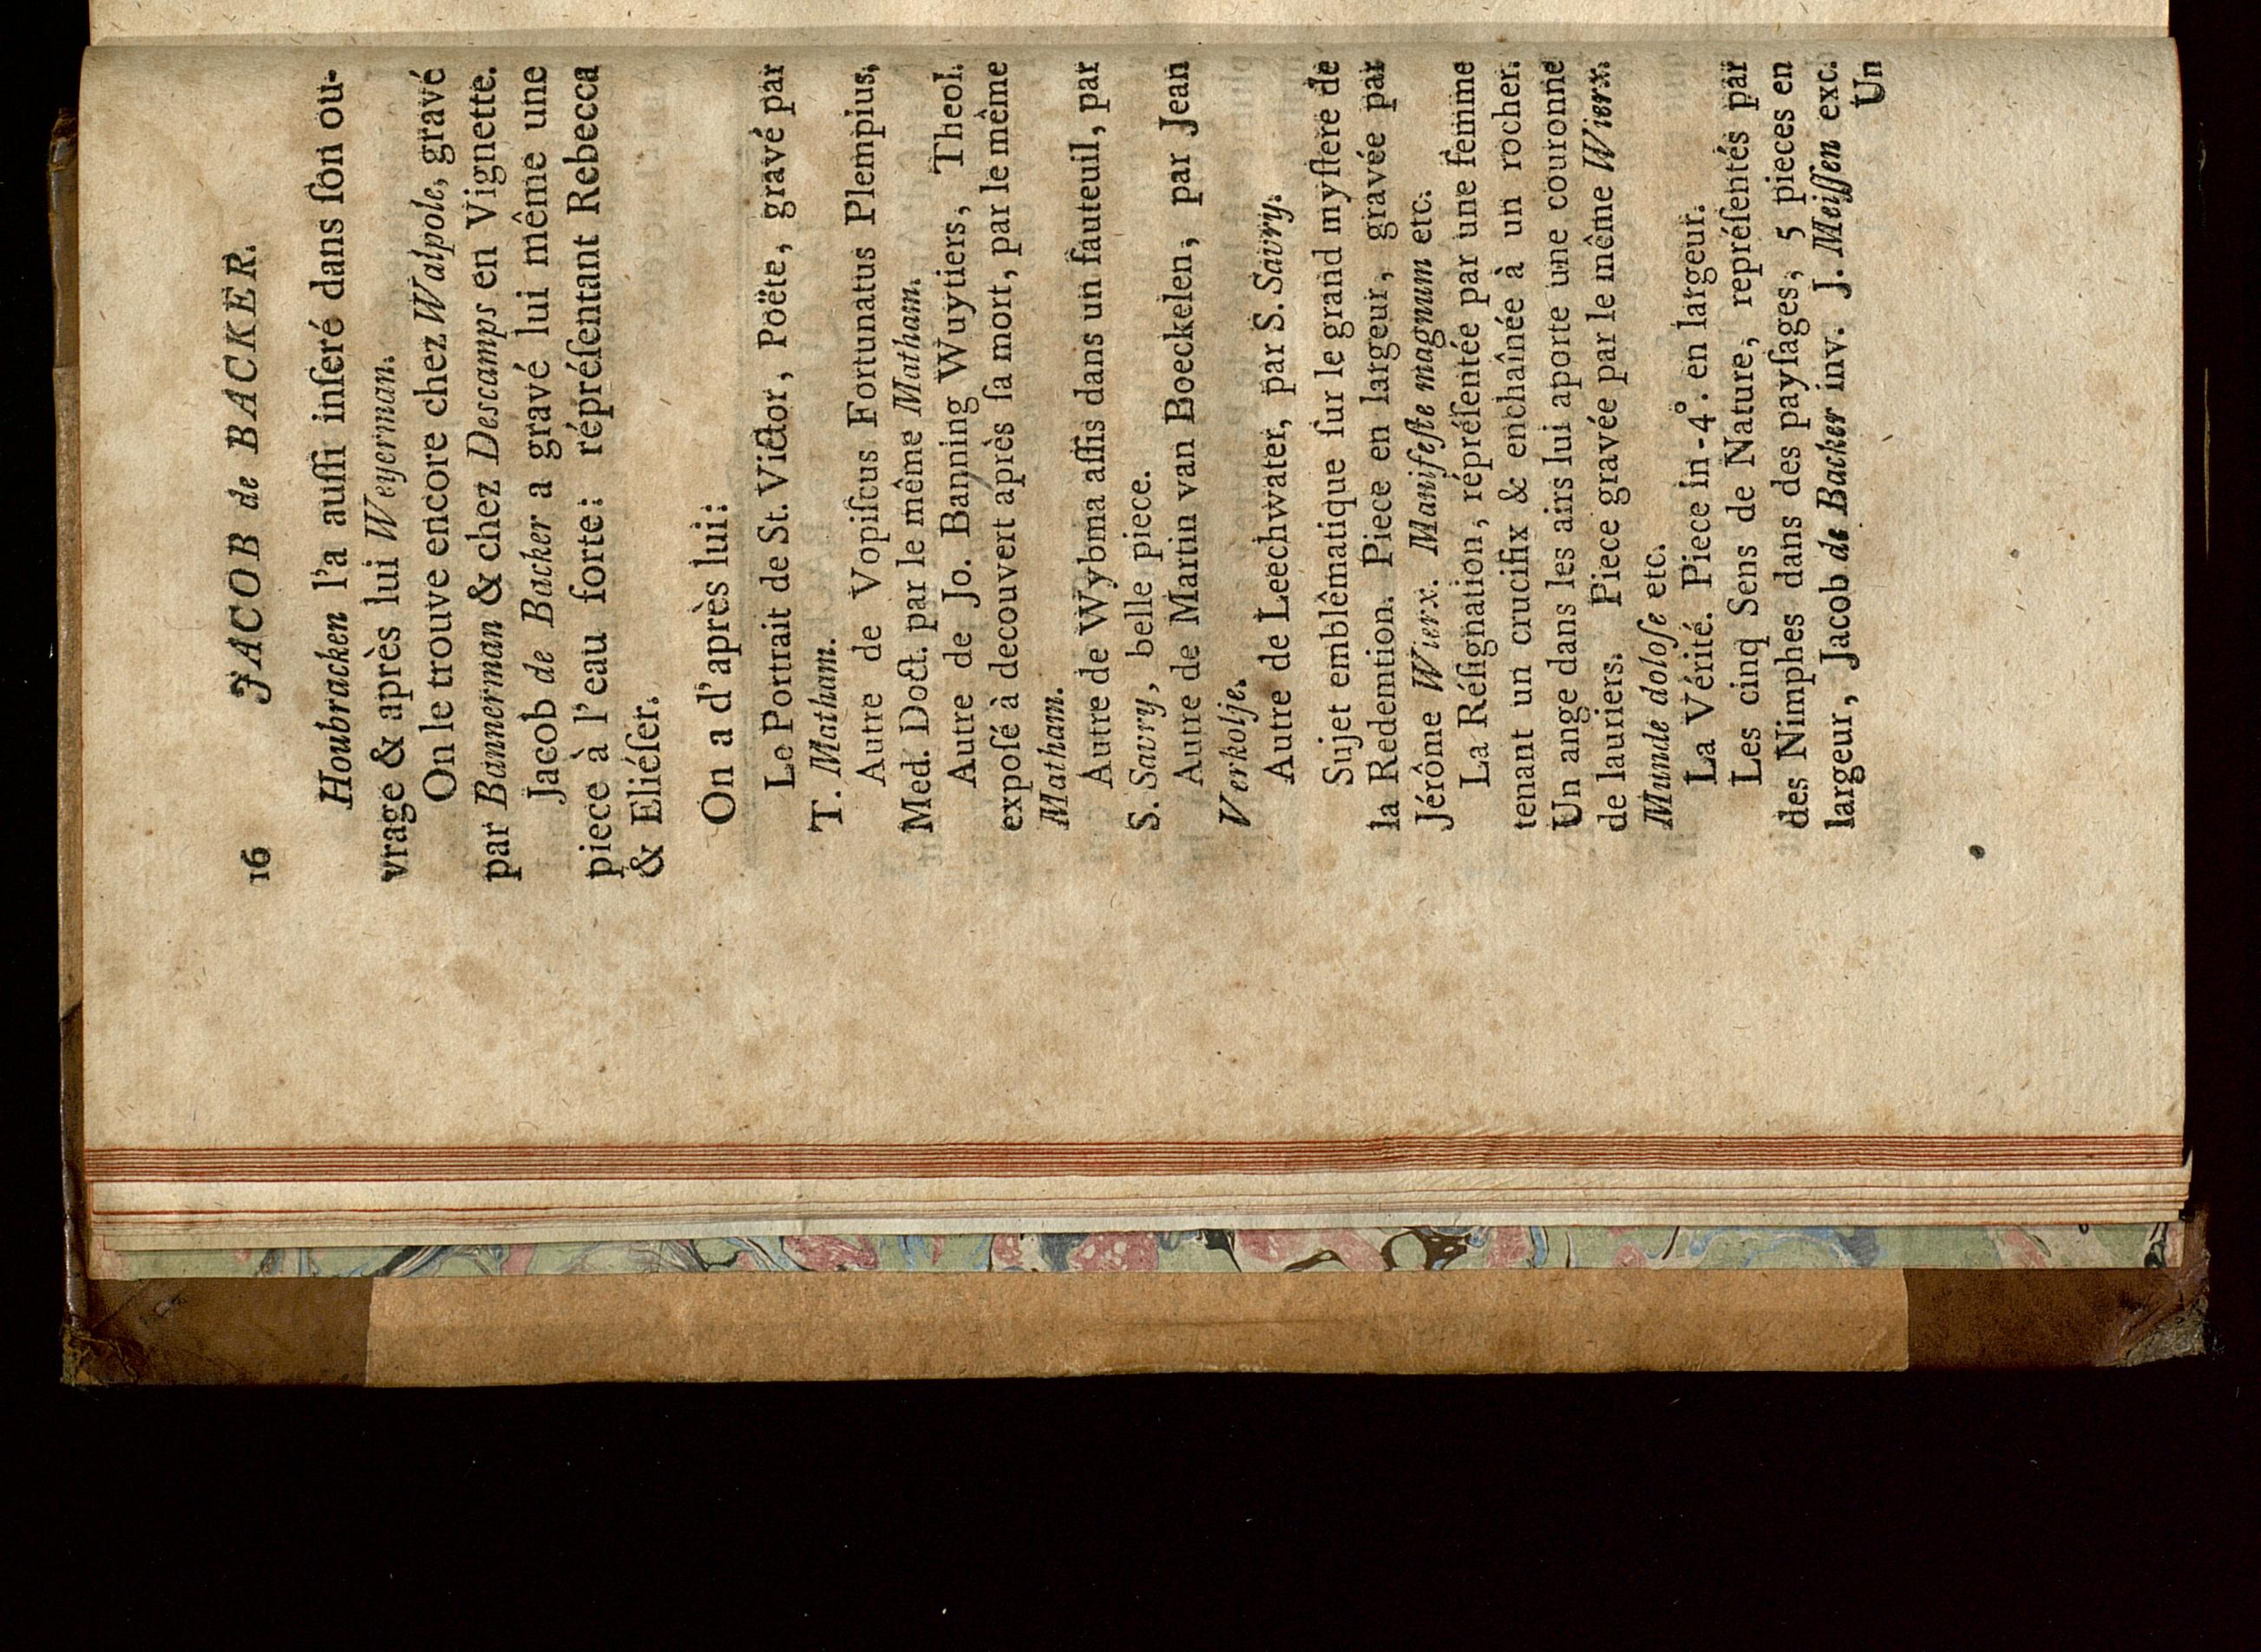 16 JACOB de BACKER.
Houbracken l'a auſſi inſeré dans ſon ou-
vrage & après lui Weyerman.
On le trouve encore chez Walpole, gravé
par Bannerman & chez Descamps en Vignette.
Jacob de Backer a gravé lui même une
piece à l'eau forte: répréſentant Rebecca
& Eliéſer.
On a d'après lui:
Le Portrait de St. Victor, Poëte, gravé par
T. Matham.
Autre de Vopiſcus Fortunatus Plempius,
Med. Doct. par le même Matham.
Autre de Jo. Banning Wuytiers, Theol.
expoſé à decouvert après ſa mort, par le même
Matham.
Autre de Wybma aſſis dans un fauteuil, par
S. Savry, belle piece.
Autre de Martin van Boeckelen, par Jean
Verkolje.
Autre de Leechwater, par S. Savry.
Sujet emblêmatique ſur le grand myſtere de
la Redemtion. Piece en largeur, gravée par
Jérôme Wierx. Manifeſte magnum etc.
La Réſignation, répréſentée par une femme
tenant un crucifix & enchaînée à un rocher.
Un ange dans les airs lui aporte une couronne
de lauriers. Piece gravée par le même Wierx.
Munde doloſe etc.
La Vérité. Piece in-4°. en largeur.
Les cinq Sens de Nature, repréſentés par
des Nimphes dans des payſages, 5 pieces en
largeur, Jacob de Backer inv. J. Meiſſen exc.
Un